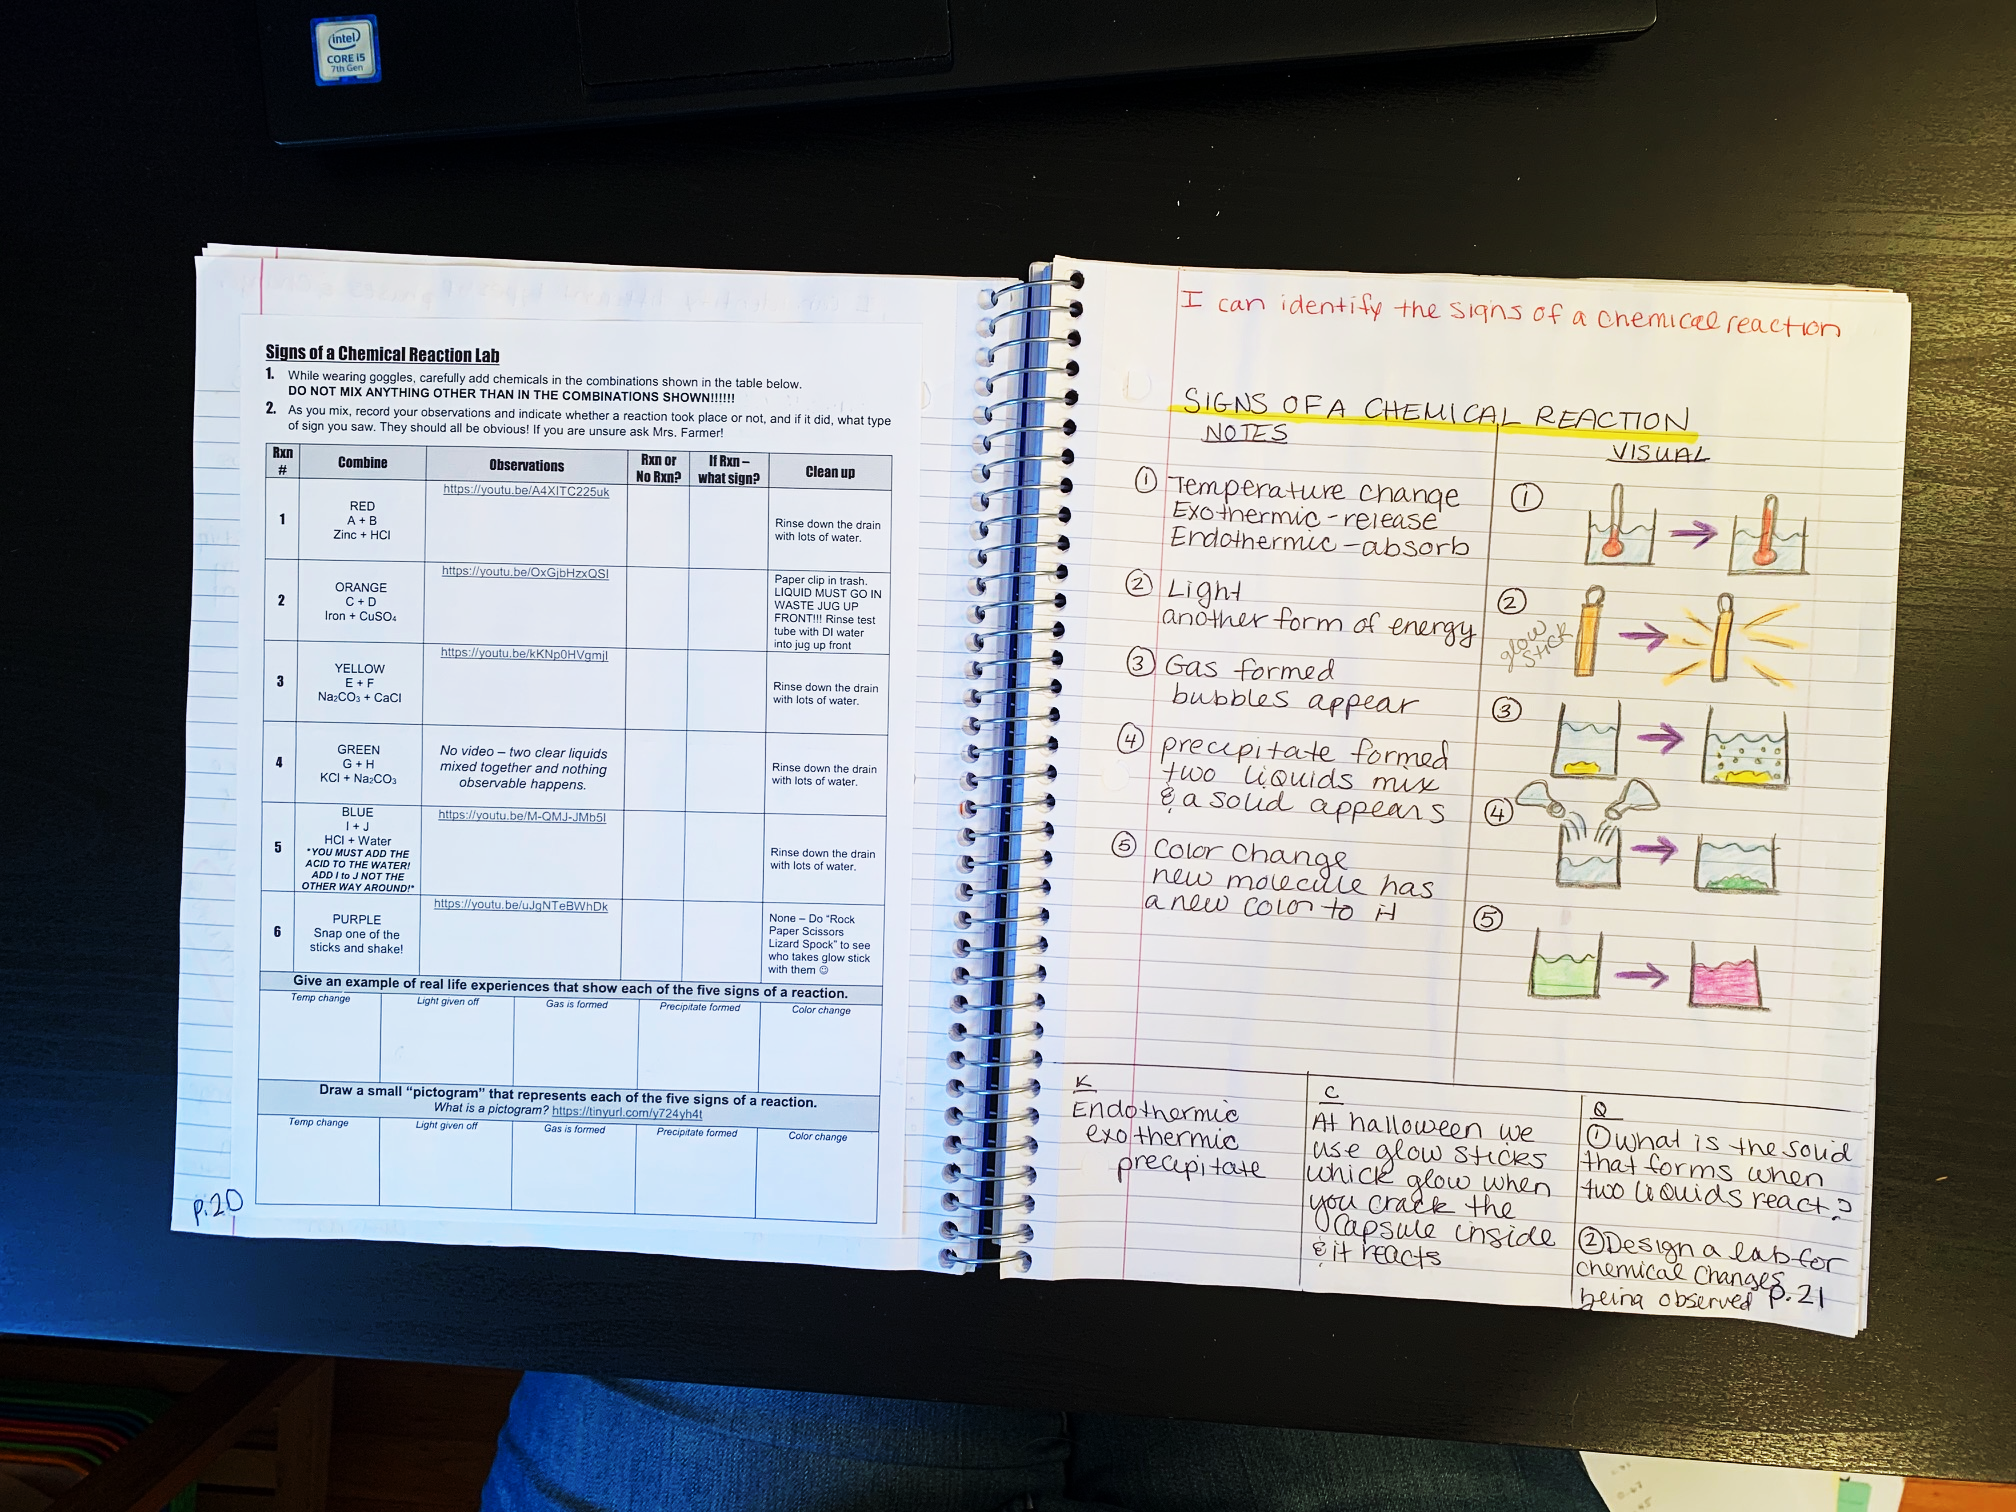 intel
CORE i5
7th Gen
Signs of a Chemical Reaction Lab
1. While wearing goggles, carefully add chemicals in the combinations shown in the table below.
DO NOT MIX ANYTHING OTHER THAN IN THE COMBINATIONS SHOWN!!!!!!
2. As you mix, record your observations and indicate whether a reaction took place or not, and if it did, what type
of sign you saw. They should all be obvious! If you are unsure ask Mrs. Farmer!
Rxn
#
Combine
Observations
Rxn or
No Rxn?
If Rxn –
what sign?
Clean up
1
RED
A + B
Zinc + HCl
https://youtu.be/A4XITC225uk
Rinse down the drain
with lots of water.
2
ORANGE
C + D
Iron + CuSO₄
https://youtu.be/OxGjbHzxQSI
Paper clip in trash.
LIQUID MUST GO IN
WASTE JUG UP
FRONT!!! Rinse test
tube with DI water
into jug up front
3
YELLOW
E + F
Na₂CO₃ + CaCl
https://youtu.be/kKNp0HVgmjI
Rinse down the drain
with lots of water.
4
GREEN
G + H
KCl + Na₂CO₃
No video – two clear liquids
mixed together and nothing
observable happens.
Rinse down the drain
with lots of water.
5
BLUE
I + J
HCl + Water
*YOU MUST ADD THE
ACID TO THE WATER!
ADD I to J NOT THE
OTHER WAY AROUND!*
https://youtu.be/M-QMJ-JMb5I
Rinse down the drain
with lots of water.
6
PURPLE
Snap one of the
sticks and shake!
https://youtu.be/uJgNTeBWhDk
None – Do "Rock
Paper Scissors
Lizard Spock" to see
who takes glow stick
with them ☺
Give an example of real life experiences that show each of the five signs of a reaction.
Temp change
Light given off
Gas is formed
Precipitate formed
Color change
Draw a small "pictogram" that represents each of the five signs of a reaction.
What is a pictogram? https://tinyurl.com/y724yh4t
Temp change
Light given off
Gas is formed
Precipitate formed
Color change
p.20
I can identify the signs of a chemical reaction
SIGNS OF A CHEMICAL REACTION
NOTES
① Temperature change
Exothermic - release
Endothermic - absorb
② Light
another form of energy
③ Gas formed
bubbles appear
④ precipitate formed
two liquids mix
& a solid appears
⑤ Color Change
new molecule has
a new color to it
VISUAL
①
②
glow
stick
③
④
⑤
K
Endothermic
exothermic
precipitate
C
At halloween we
use glow sticks
whick glow when
you crack the
capsule inside
& it reacts
Q
① what is the solid
that forms when
two liquids react?
② Design a lab for
chemical changes
being observed p.21